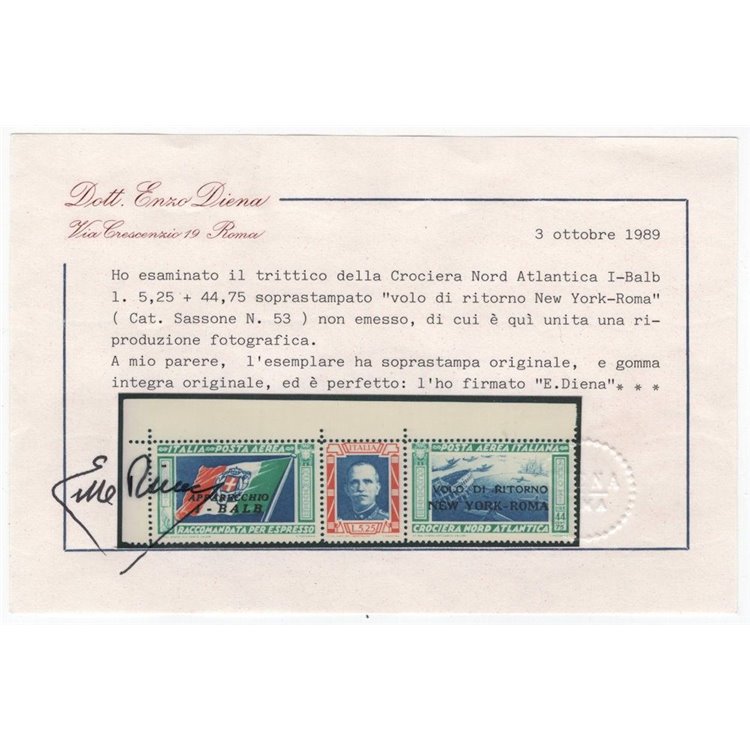 Dott. Enzo Diena
Via Crescenzio 19 Roma
3 ottobre 1989
Ho esaminato il trittico della Crociera Nord Atlantica I-Balb
l. 5,25 + 44,75 soprastampato "volo di ritorno New York-Roma"
( Cat. Sassone N. 53 ) non emesso, di cui è quì unita una ri-
produzione fotografica.
A mio parere, l'esemplare ha soprastampa originale, e gomma
integra originale, ed è perfetto: l'ho firmato "E.Diena"* * *
ITALIA POSTA AEREA
APPARECCHIO
I-BALB
RACCOMANDATA PER ESPRESSO
ITALIA
L.5,25
POSTA AEREA ITALIANA
VOLO DI RITORNO
NEW YORK-ROMA
CROCIERA NORD ATLANTICA